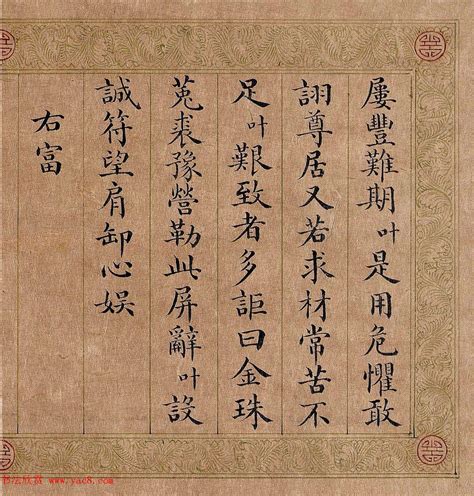 屢豐難期叶是用危懼敢
詡尊居又若求材常苦不
足叶艱致者多詎曰金珠
菟裘豫營勒此屏辭叶設
誠符望肩卸心娱
右富
书法欣赏 www.yac8.com